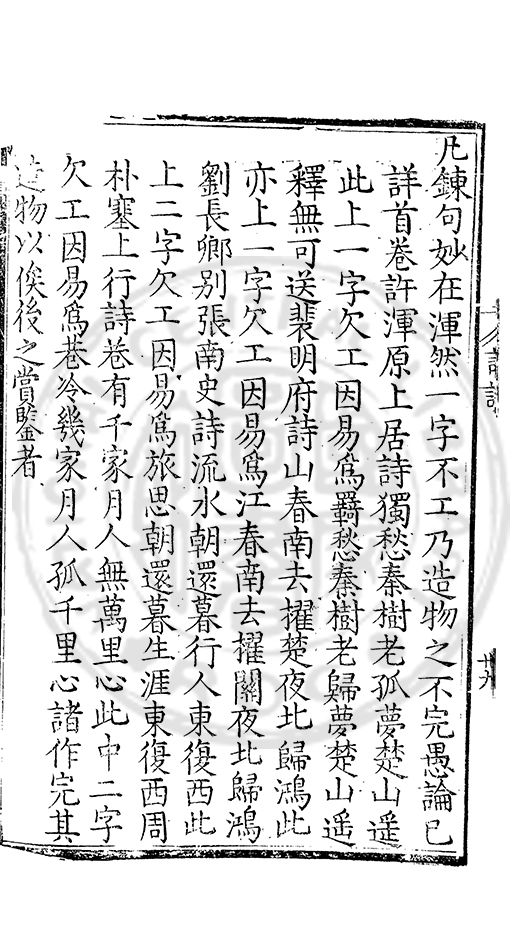 凡鍊句妙在渾然一字不工乃造物之不完愚論已
詳首卷許渾原上居詩獨愁秦樹老孤夢楚山遥
此上一字欠工因易爲羇愁秦樹老歸夢楚山遥
釋無可送裴明府詩山春南去櫂楚夜北歸鴻此
亦上一字欠工因易爲江春南去櫂關夜北歸鴻
劉長卿別張南史詩流水朝還暮行人東復西此
上二字欠工因易爲旅思朝還暮生涯東復西周
朴塞上行詩巷有千家月人無萬里心此中二字
欠工因易爲巷冷幾家月人孤千里心諸作完其
造物以俟後之賞鑒者
詩
廿九